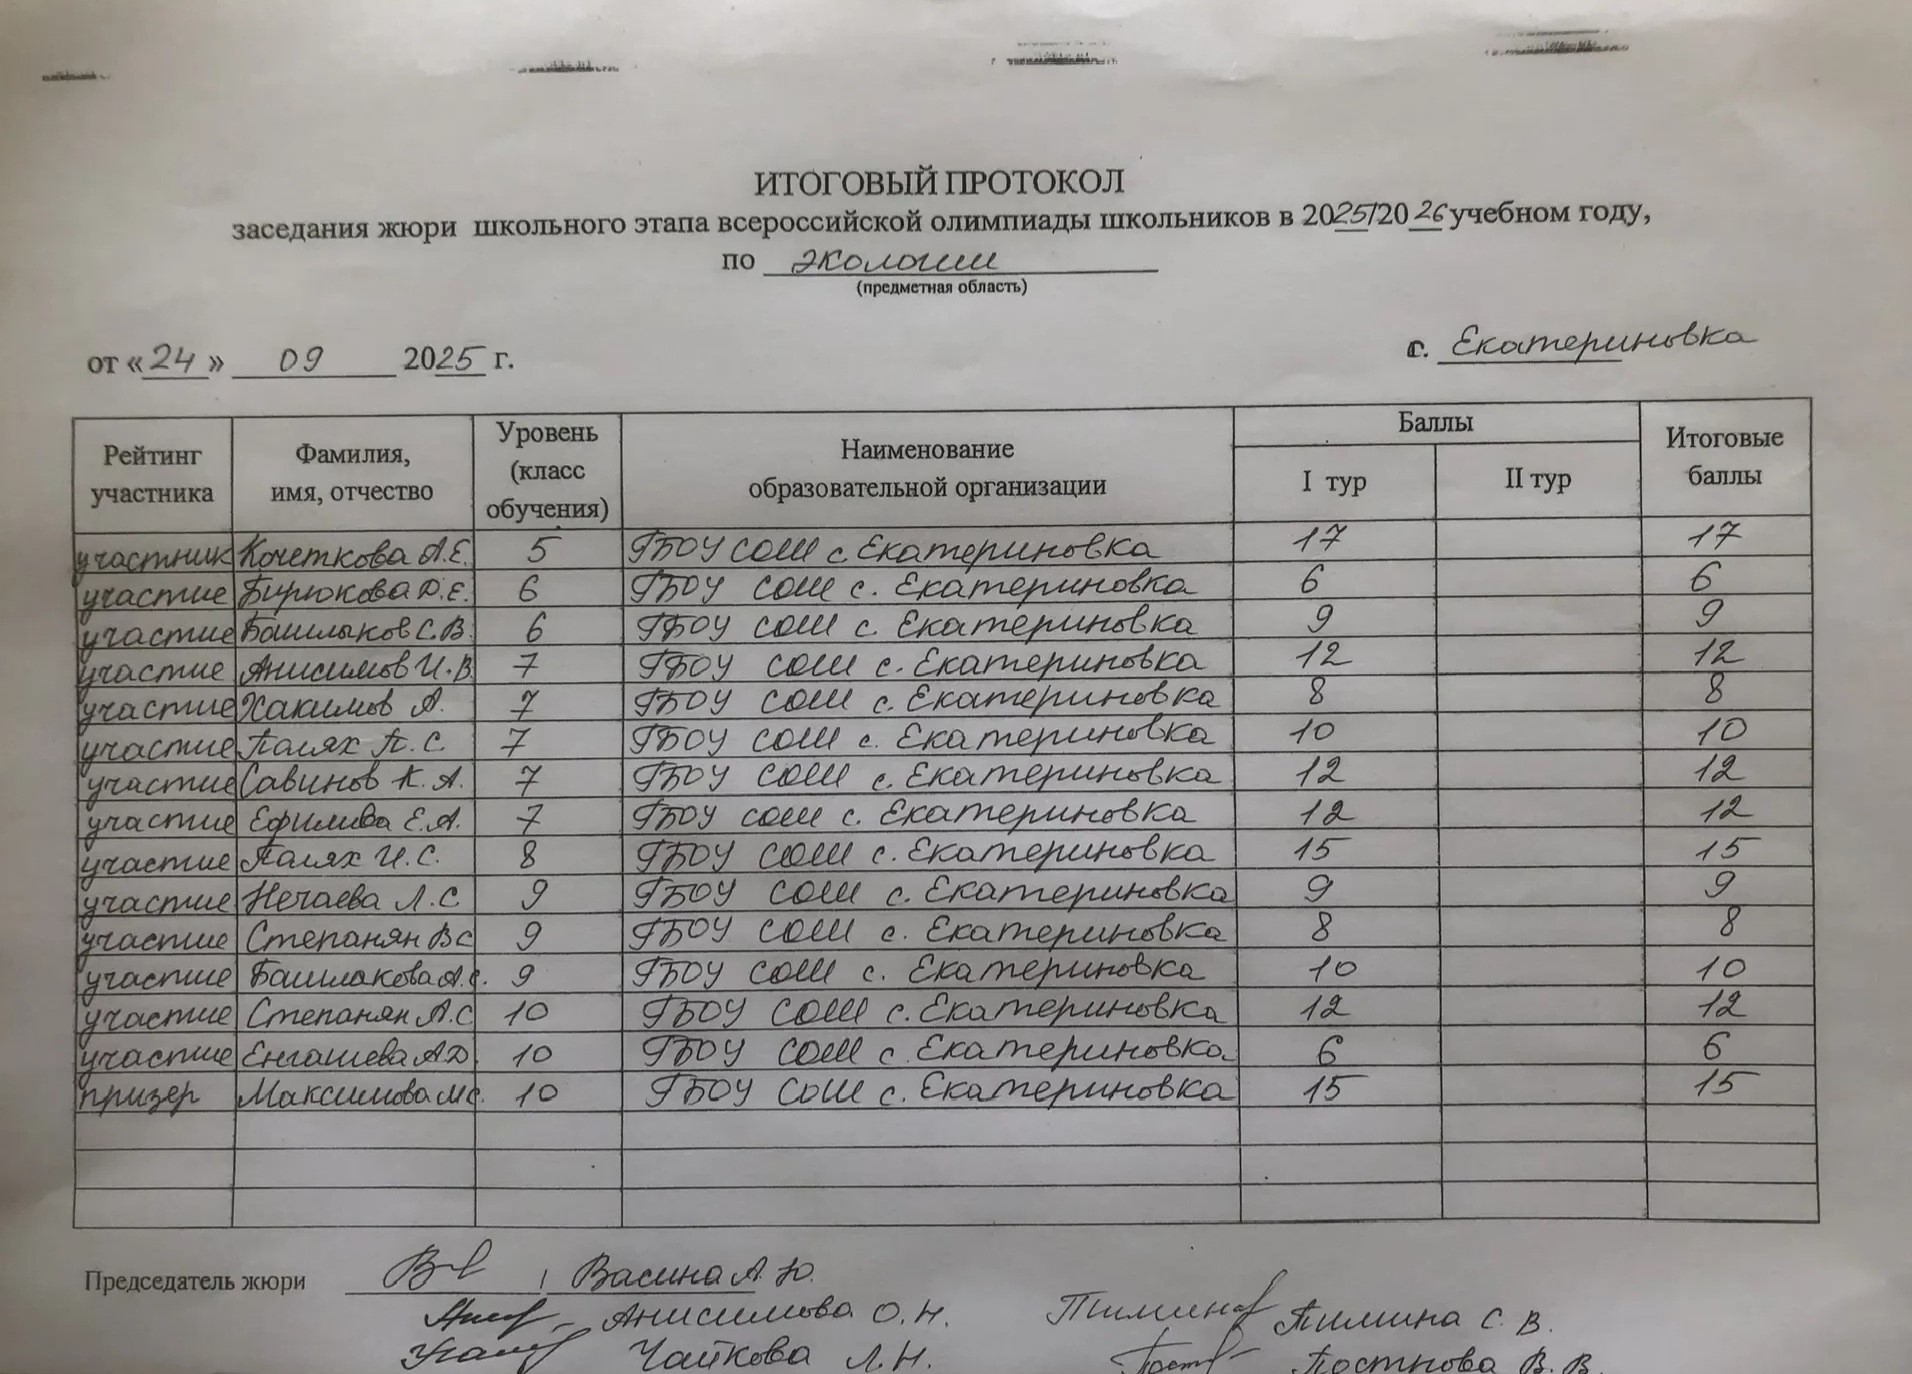 ИТОГОВЫЙ ПРОТОКОЛ
заседания жюри школьного этапа всероссийской олимпиады школьников в 2025/2026 учебном году,
по экологии
(предметная область)
от «24» 09 2025 г. с. Екатериновка
Рейтинг участника Фамилия, имя, отчество Уровень (класс обучения) Наименование образовательной организации Баллы I тур II тур Итоговые баллы
участник Кочеткова А.Е. 5 ГБОУ СОШ с Екатериновка 17 17
участие Бирюкова Д.Е. 6 ГБОУ СОШ с. Екатериновка 6 6
участие Башлыков С.В. 6 ГБОУ СОШ с. Екатериновка 9 9
участие Анисимов И.В 7 ГБОУ СОШ с. Екатериновка 12 12
участие Хакимов А. 7 ГБОУ СОШ с. Екатериновка 8 8
участие Палях П.С. 7 ГБОУ СОШ с. Екатериновка 10 10
участие Савинов К.А. 7 ГБОУ СОШ с. Екатериновка 12 12
участие Ефимова Е.А. 7 ГБОУ СОШ с. Екатериновка 12 12
участие Палях И.С. 8 ГБОУ СОШ с. Екатериновка 15 15
участие Нечаева Л.С 9 ГБОУ СОШ с. Екатериновка 9 9
участие Степанян В С 9 ГБОУ СОШ с. Екатериновка 8 8
участие Башлакова А.С. 9 ГБОУ СОШ с. Екатериновка 10 10
участие Степанян А.С 10 ГБОУ СОШ с. Екатериновка 12 12
участие Енгашева А.Д. 10 ГБОУ СОШ с. Екатериновка 6 6
призер Максимова М С. 10 ГБОУ СОШ с. Екатериновка 15 15
Председатель жюри / Васина А.Ю.
Анисимова О.Н. Пимина С.В.
Чайкова Л.Н. Постнова В.В.